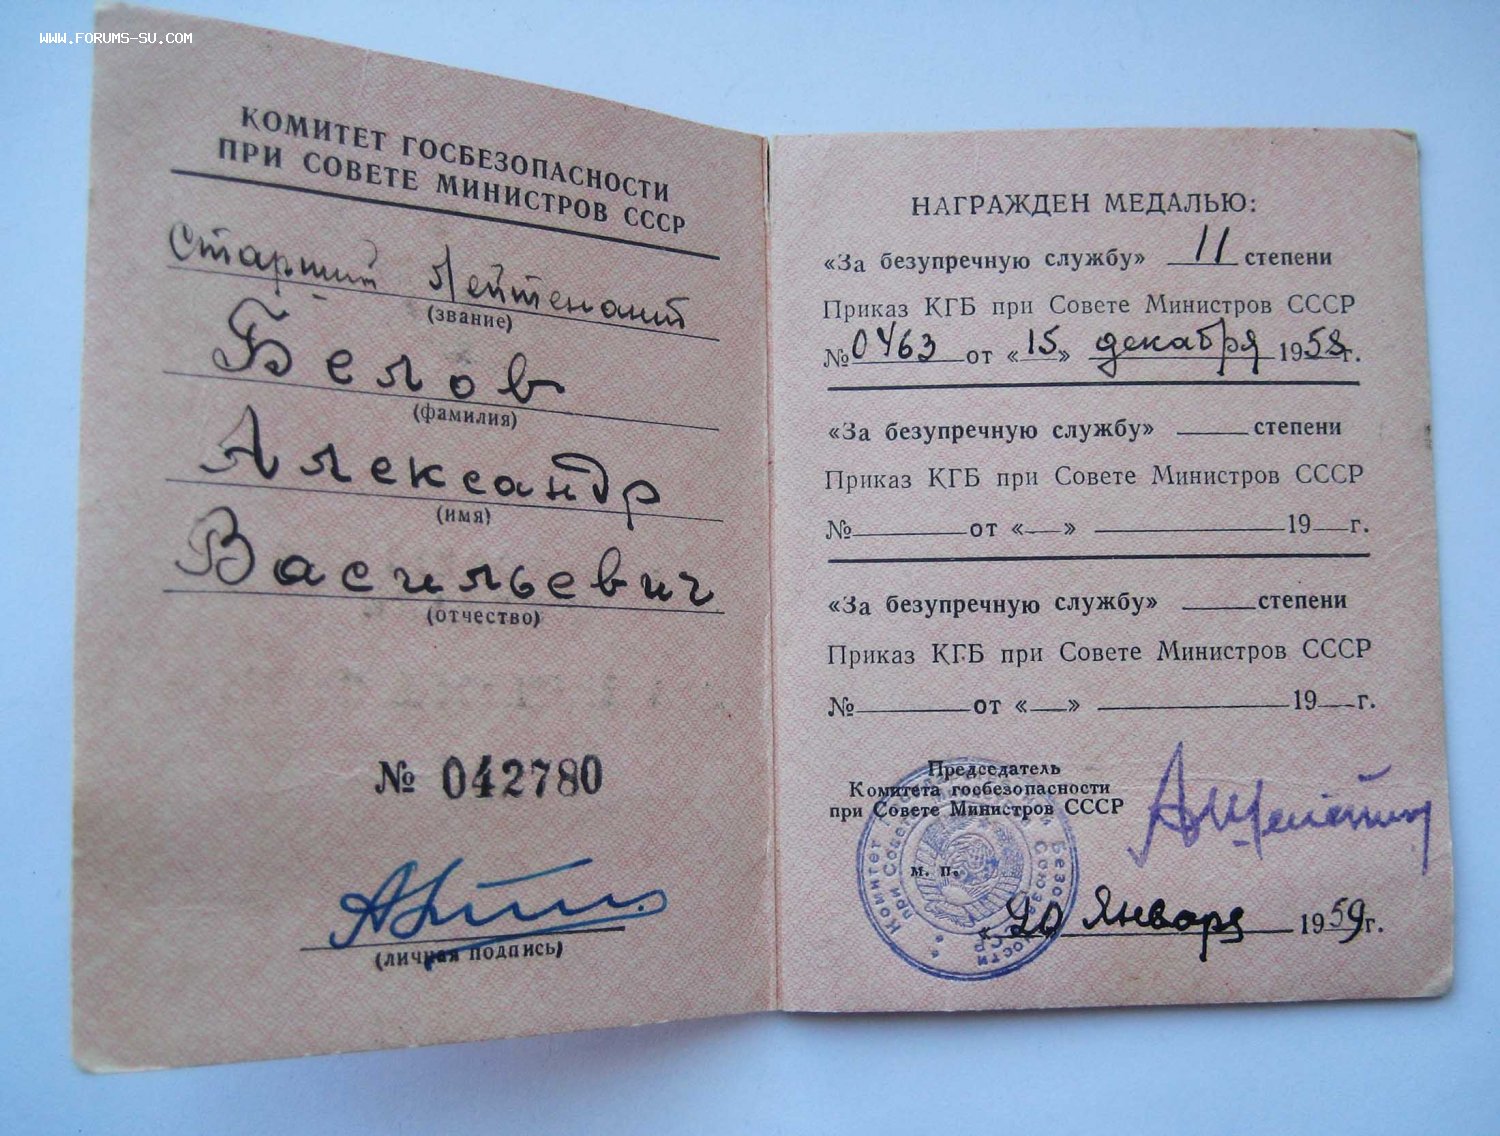 WWW.FORUMS-SU.COM
КОМИТЕТ ГОСБЕЗОПАСНОСТИ
ПРИ СОВЕТЕ МИНИСТРОВ СССР
Старший Лейтенант
(звание)
Белов
(фамилия)
Александр
(имя)
Васильевич
(отчество)
№ 042780
(личная подпись)
НАГРАЖДЕН МЕДАЛЬЮ:
«За безупречную службу» II степени
Приказ КГБ при Совете Министров СССР
№ 0463 от «15» декабря 1958 г.
«За безупречную службу» ____ степени
Приказ КГБ при Совете Министров СССР
№ ____ от «__» ____ 19__ г.
«За безупречную службу» ____ степени
Приказ КГБ при Совете Министров СССР
№ ____ от «__» ____ 19__ г.
Председатель
Комитета госбезопасности
при Совете Министров СССР
м. п.
«20» Января 1959 г.